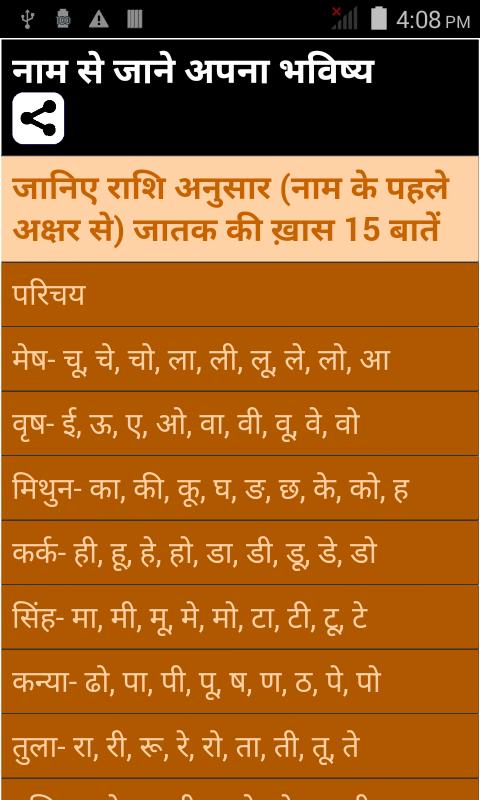 4:08 PM
नाम से जाने अपना भविष्य
जानिए राशि अनुसार (नाम के पहले
अक्षर से) जातक की ख़ास 15 बातें
परिचय
मेष- चू, चे, चो, ला, ली, लू, ले, लो, आ
वृष- ई, ऊ, ए, ओ, वा, वी, वू, वे, वो
मिथुन- का, की, कू, घ, ङ, छ, के, को, ह
कर्क- ही, हू, हे, हो, डा, डी, डू, डे, डो
सिंह- मा, मी, मू, मे, मो, टा, टी, टू, टे
कन्या- ढो, पा, पी, पू, ष, ण, ठ, पे, पो
तुला- रा, री, रू, रे, रो, ता, ती, तू, ते